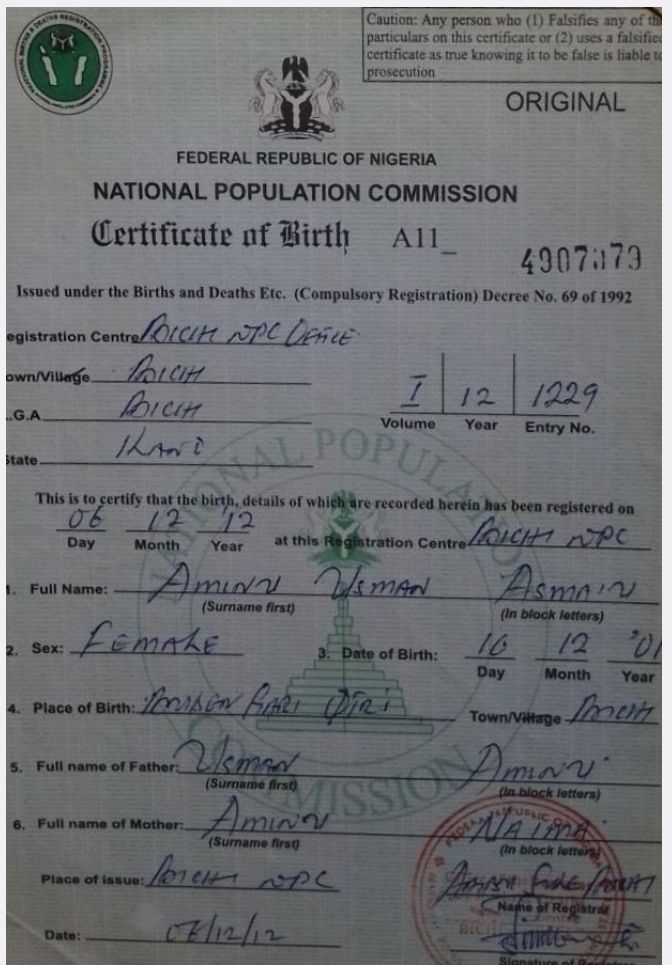 Caution: Any person who (1) Falsifies any of th
particulars on this certificate or (2) uses a falsified
certificate as true knowing it to be false is liable to
prosecution
ORIGINAL
FEDERAL REPUBLIC OF NIGERIA
NATIONAL POPULATION COMMISSION
Certificate of Birth A11_
Issued under the Births and Deaths Etc. (Compulsory Registration) Decree No. 69 of 1992
egistration Centre BICHI NPC OFFICE
own/Village BICHI
.G.A BICHI
I 12 1229
Volume Year Entry No.
State KANO
NATIONAL POPULATION COMMISSION
This is to certify that the birth, details of which are recorded herein has been registered on
06 12 '12
Day Month Year at this Registration Centre BICHI NPC
1. Full Name: AMINU USMAN
(Surname first) (In block letters)
2. Sex: FEMALE 3. Date of Birth: 12 '01
Day Month Year
4. Place of Birth: Town/Village BICHI
5. Full name of Father: USMAN AMINU
(Surname first) (In block letters)
6. Full name of Mother: AMINU NAIMA
(Surname first) (In block letters)
Place of issue: BICHI NPC
Name of Registrar
Date: /12/12
Signature of